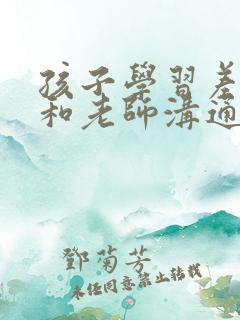 孩子學習差
和老師溝通
鄧菊芳
未经同意禁止转载